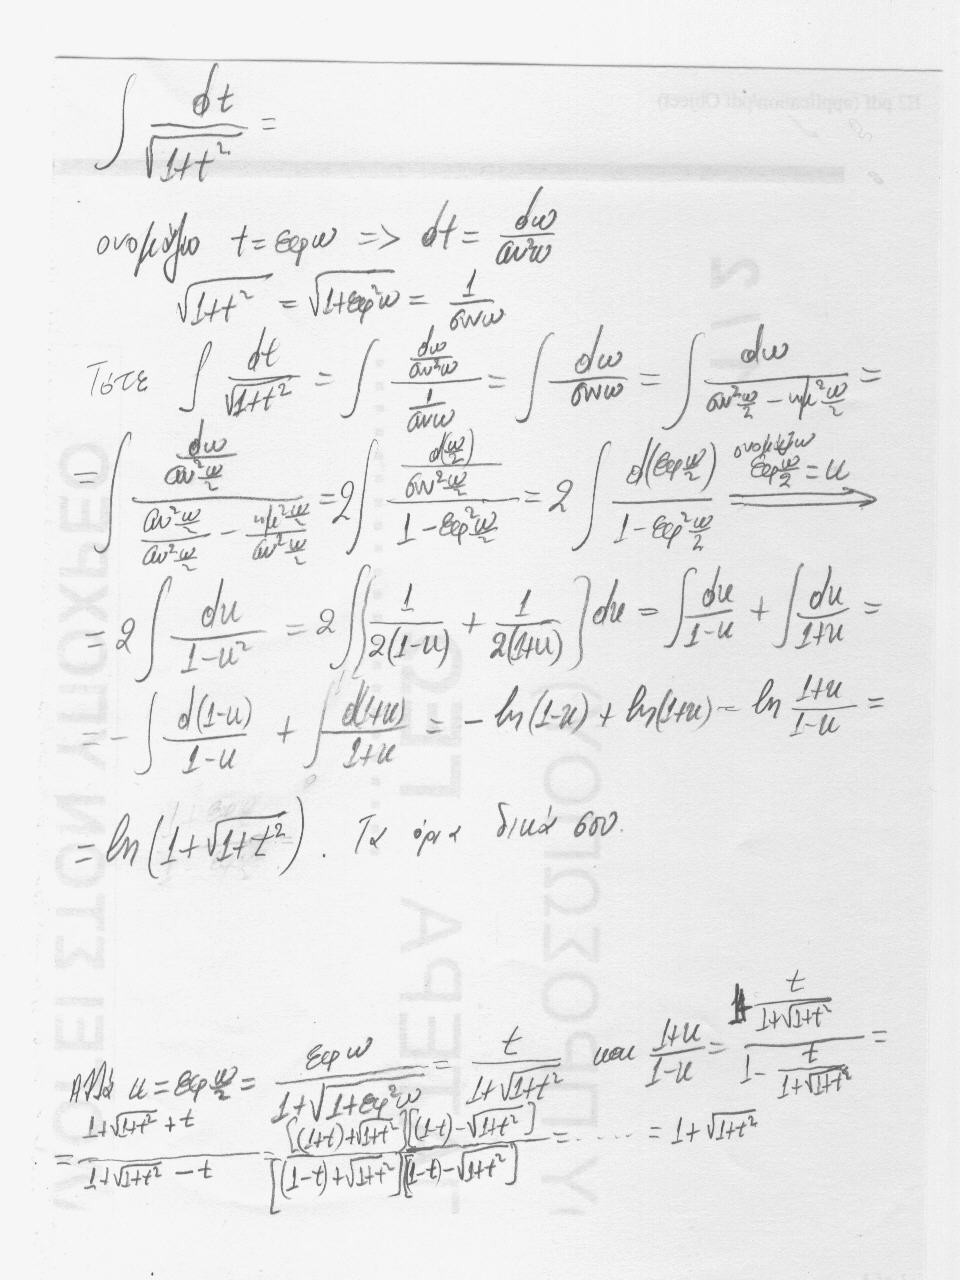 ∫ dt/√(1+t²) =
ονομάζω t = εφω => dt = dω/συν²ω
√(1+t²) = √(1+εφ²ω) = 1/συνω
Τότε ∫ dt/√(1+t²) = ∫ (dω/συν²ω)/(1/συνω) = ∫ dω/συνω = ∫ dω/(συν²ω/2 − ημ²ω/2) =
= ∫ (dω/συν²ω/2)/(συν²ω/2/συν²ω/2 − ημ²ω/2/συν²ω/2) = 2∫ (d(ω/2)/συν²ω/2)/(1 − εφ²ω/2) = 2 ∫ d(εφω/2)/(1 − εφ²ω/2) ονομάζω εφω/2 = u ⟹
= 2 ∫ du/(1−u²) = 2 ∫ [1/2(1−u) + 1/2(1+u)] du = ∫ du/(1−u) + ∫ du/(1+u) =
= − ∫ d(1−u)/(1−u) + ∫ d(1+u)/(1+u) = − ln(1−u) + ln(1+u) = ln (1+u)/(1−u) =
= ln(1+√(1+t²)). Τα όρια δικά σου.
Αλλά u = εφω/2 = εφω/(1+√(1+εφ²ω)) = t/(1+√(1+t²)) και (1+u)/(1−u) = (1+t/(1+√(1+t²)))/(1−t/(1+√(1+t²))) =
= (1+√(1+t²)+t)/(1+√(1+t²)−t) = [(1+t)+√(1+t²)][(1−t)−√(1+t²)]/[(1−t)+√(1+t²)][(1−t)−√(1+t²)] = ...... = 1+√(1+t²)